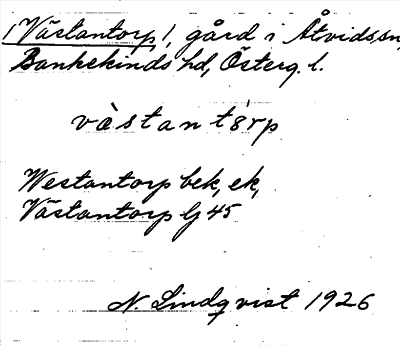 /Västantorp/, gård i Åtvids sn,
Bankekinds hd, Österg. l.
vàstantórp
Westantorp bek, ek,
Västantorp Gj 45
N. Lindqvist 1926